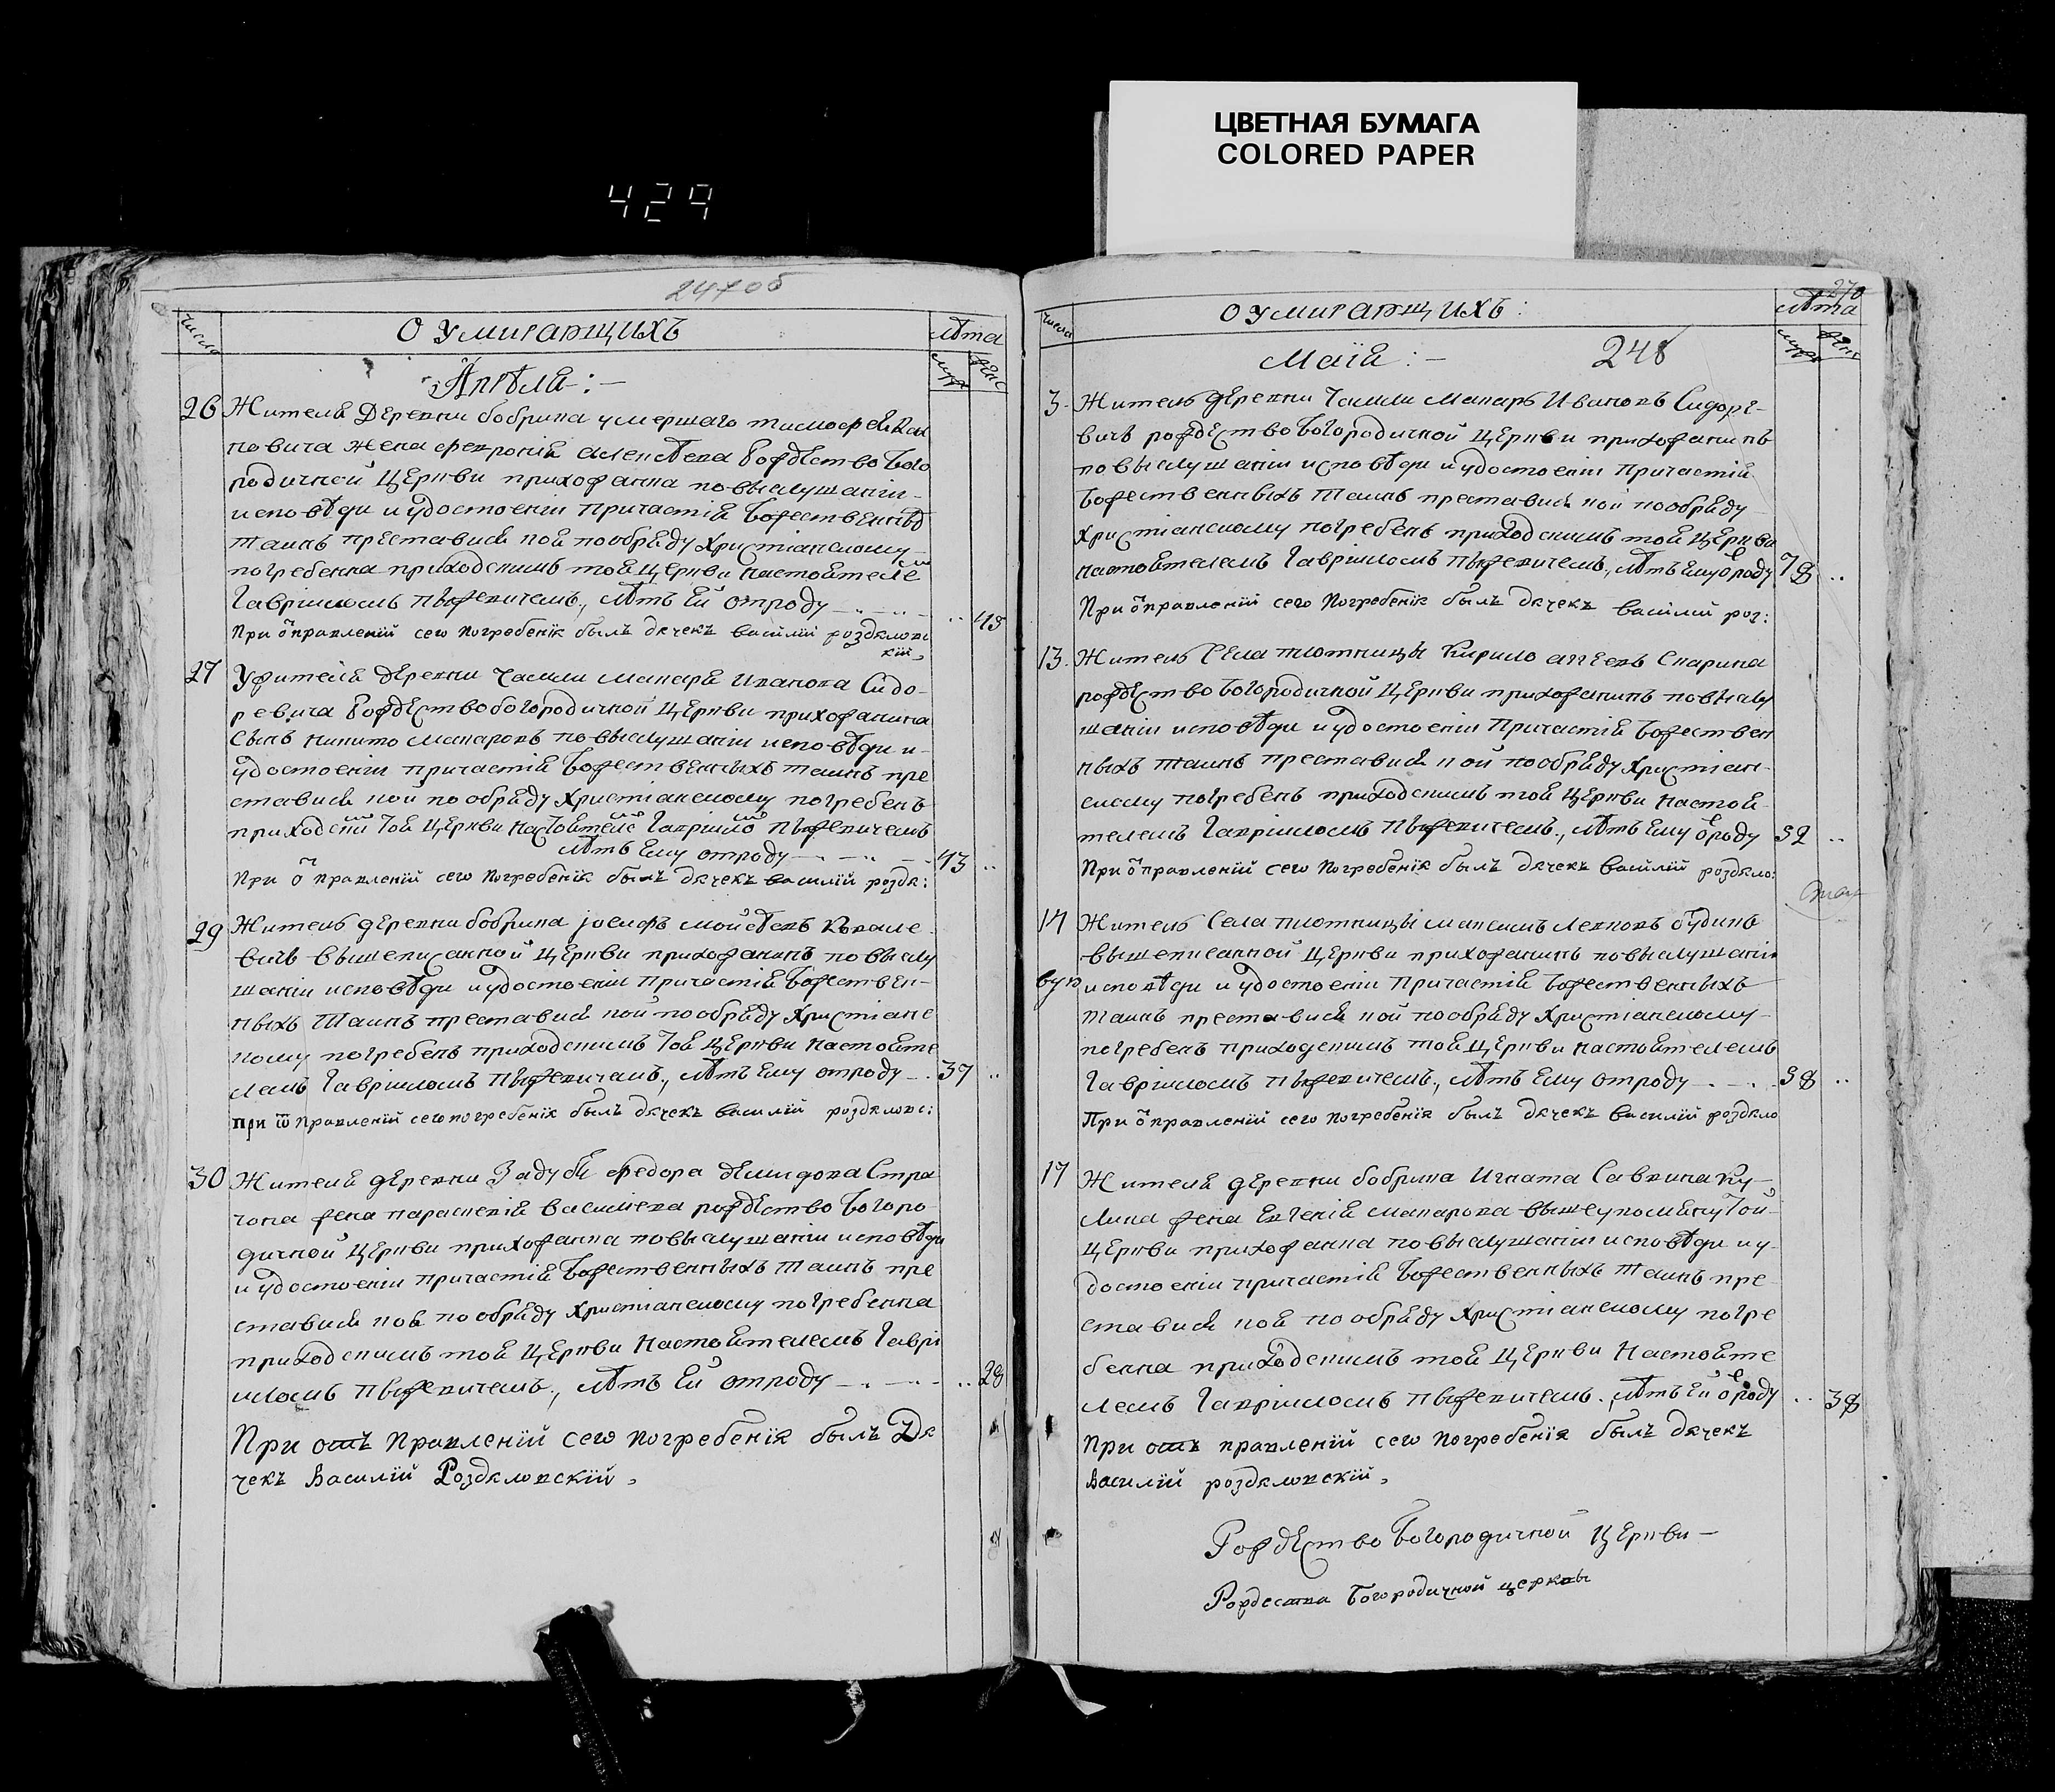 ЦВЕТНАЯ БУМАГА
COLORED PAPER
429
247об
число
О УМИРАЮЩИХЪ
лѣта
муж
женс
Апрѣля :-
26 Жителя Деревни бобрика умершаго тимофея
новича жена февронія алексѣева Рождество Бого
родичной Церкви прихожанка повыслушаніи
исповѣди и удостоеніи причастія Божественных
таинъ преставися коя пообряду Христіанскому
погребенна приходскимъ тоя Церкви настоятеле
Гавріиломъ Пыжевичемъ., лѣтъ Ей отроду .. 45
При отправленій сего погребенія былъ дячекъ василій роздяловс
кій,
27 У жителя деревни Чамли макара иванова Сидо-
ревича Рождествобогородичной Церкви прихожанина
сынъ никито макаровъ повыслушаніи исповѣди и-
удостоеніи причастія Божественныхъ таинъ пре
ставися кой по обряду Христіанскому погребенъ
приходским Тоя Церкви настоятеле Гавріило Пыжевичемъ
лѣтъ Ему отроду 43 ..
При отправленій сего погребенія былъ дячекъ василій роздя:
29 Житель деревни бобрика іосифъ мойсѣевъ Ковале
вичь вышеписанной Церкви прихожанинъ повыслу
шаніи исповѣди и удостоеніи причастія Божествен-
ныхъ Таинъ преставися кой пообряду Христіанс
кому погребенъ приходскимъ Тоя Церкви настояте
лемъ Гавріиломъ Пыжевичемъ., лѣтъ Ему отроду 37 ..
при отправленій сего погребенія былъ дячекъ василій роздяловс:
30 Жителя деревни Задубя федора демидова Стра
чока жена параскевія василіева рождество Богоро
дичной Церкви прихожанка повыслушаніи исповѣди
и удостоеніи причастія Божественныхъ Таинъ пре
ставися коя по обряду Христіанскому погребенна
приходскимъ тоя Церкви Настоятелемъ Гаврі
иломъ Пыжевичемъ., лѣтъ Ей отроду .. 28
При отъ Правленій сего погребенія былъ Дя
чекъ Василій Роздяловскій,
270
число
О УМИРАЮЩИХЪ :
лѣта
муж
женс
Маія :- 248
3. Житель деревни Чамли макаръ Ивановъ Сидоре-
вичь рождество Богородичной Церкви прихожанинъ
по выслушаніи исповѣди и удостоеніи причастія
Божественныхъ таинъ преставися кой пообряду
Христіанскому погребенъ приходскимъ тоя Церкви
настоятелемъ Гавріиломъ Пыжевичемъ., лѣтъ Ему ѿроду 78 ..
При отправленій сего погребенія былъ дячекъ василій роз:
13. Житель Села плотницы Кирило Скарина
рождество Богородичной Церкви прихожанинъ повыслу
шаніи исповѣди и удостоеніи Причастія Божествен
ныхъ таинъ преставися кой пообряду Христіан-
скому погребенъ приходскимъ тоя Церкви настоя
телемъ Гавріиломъ Пыжевичемъ., лѣтъ Ему ѿроду 32 ..
При отправленій сего погребенія былъ дячекъ василій роздяло:
14 Житель Села плотницы максимъ леоновъ будикъ
вышеписанной Церкви прихожанинъ повыслушаніи
исповѣди и удостоеніи Причастія Божественныхъ
таинъ преставися кой пообряду Христіанскому-
погребенъ приходскимъ тоя Церкви настоятелемъ
Гавріиломъ Пыжевичемъ., лѣтъ Ему отроду 38 ..
При отправленій сего погребенія былъ дячекъ василій роздяло
17 Жителя деревни бобрика Игната Саввина Ку-
лика жена Евгенія макарова вышеупомянутой
Церкви прихожанка повыслушаніи исповѣди и у-
достоеніи причастія Божественныхъ Таинъ пре
ставися коя по обряду Христіанскому погре
бенна приходскимъ тоя Церкви Настояте
лемъ Гавріиломъ Пыжевичемъ., лѣтъ Ей ѿроду .. 38
При отъ правленій сего погребенія былъ дячекъ
Василій роздяловскій,
Рождество Богородичной Церкви-
Рождества Богородичной церквы